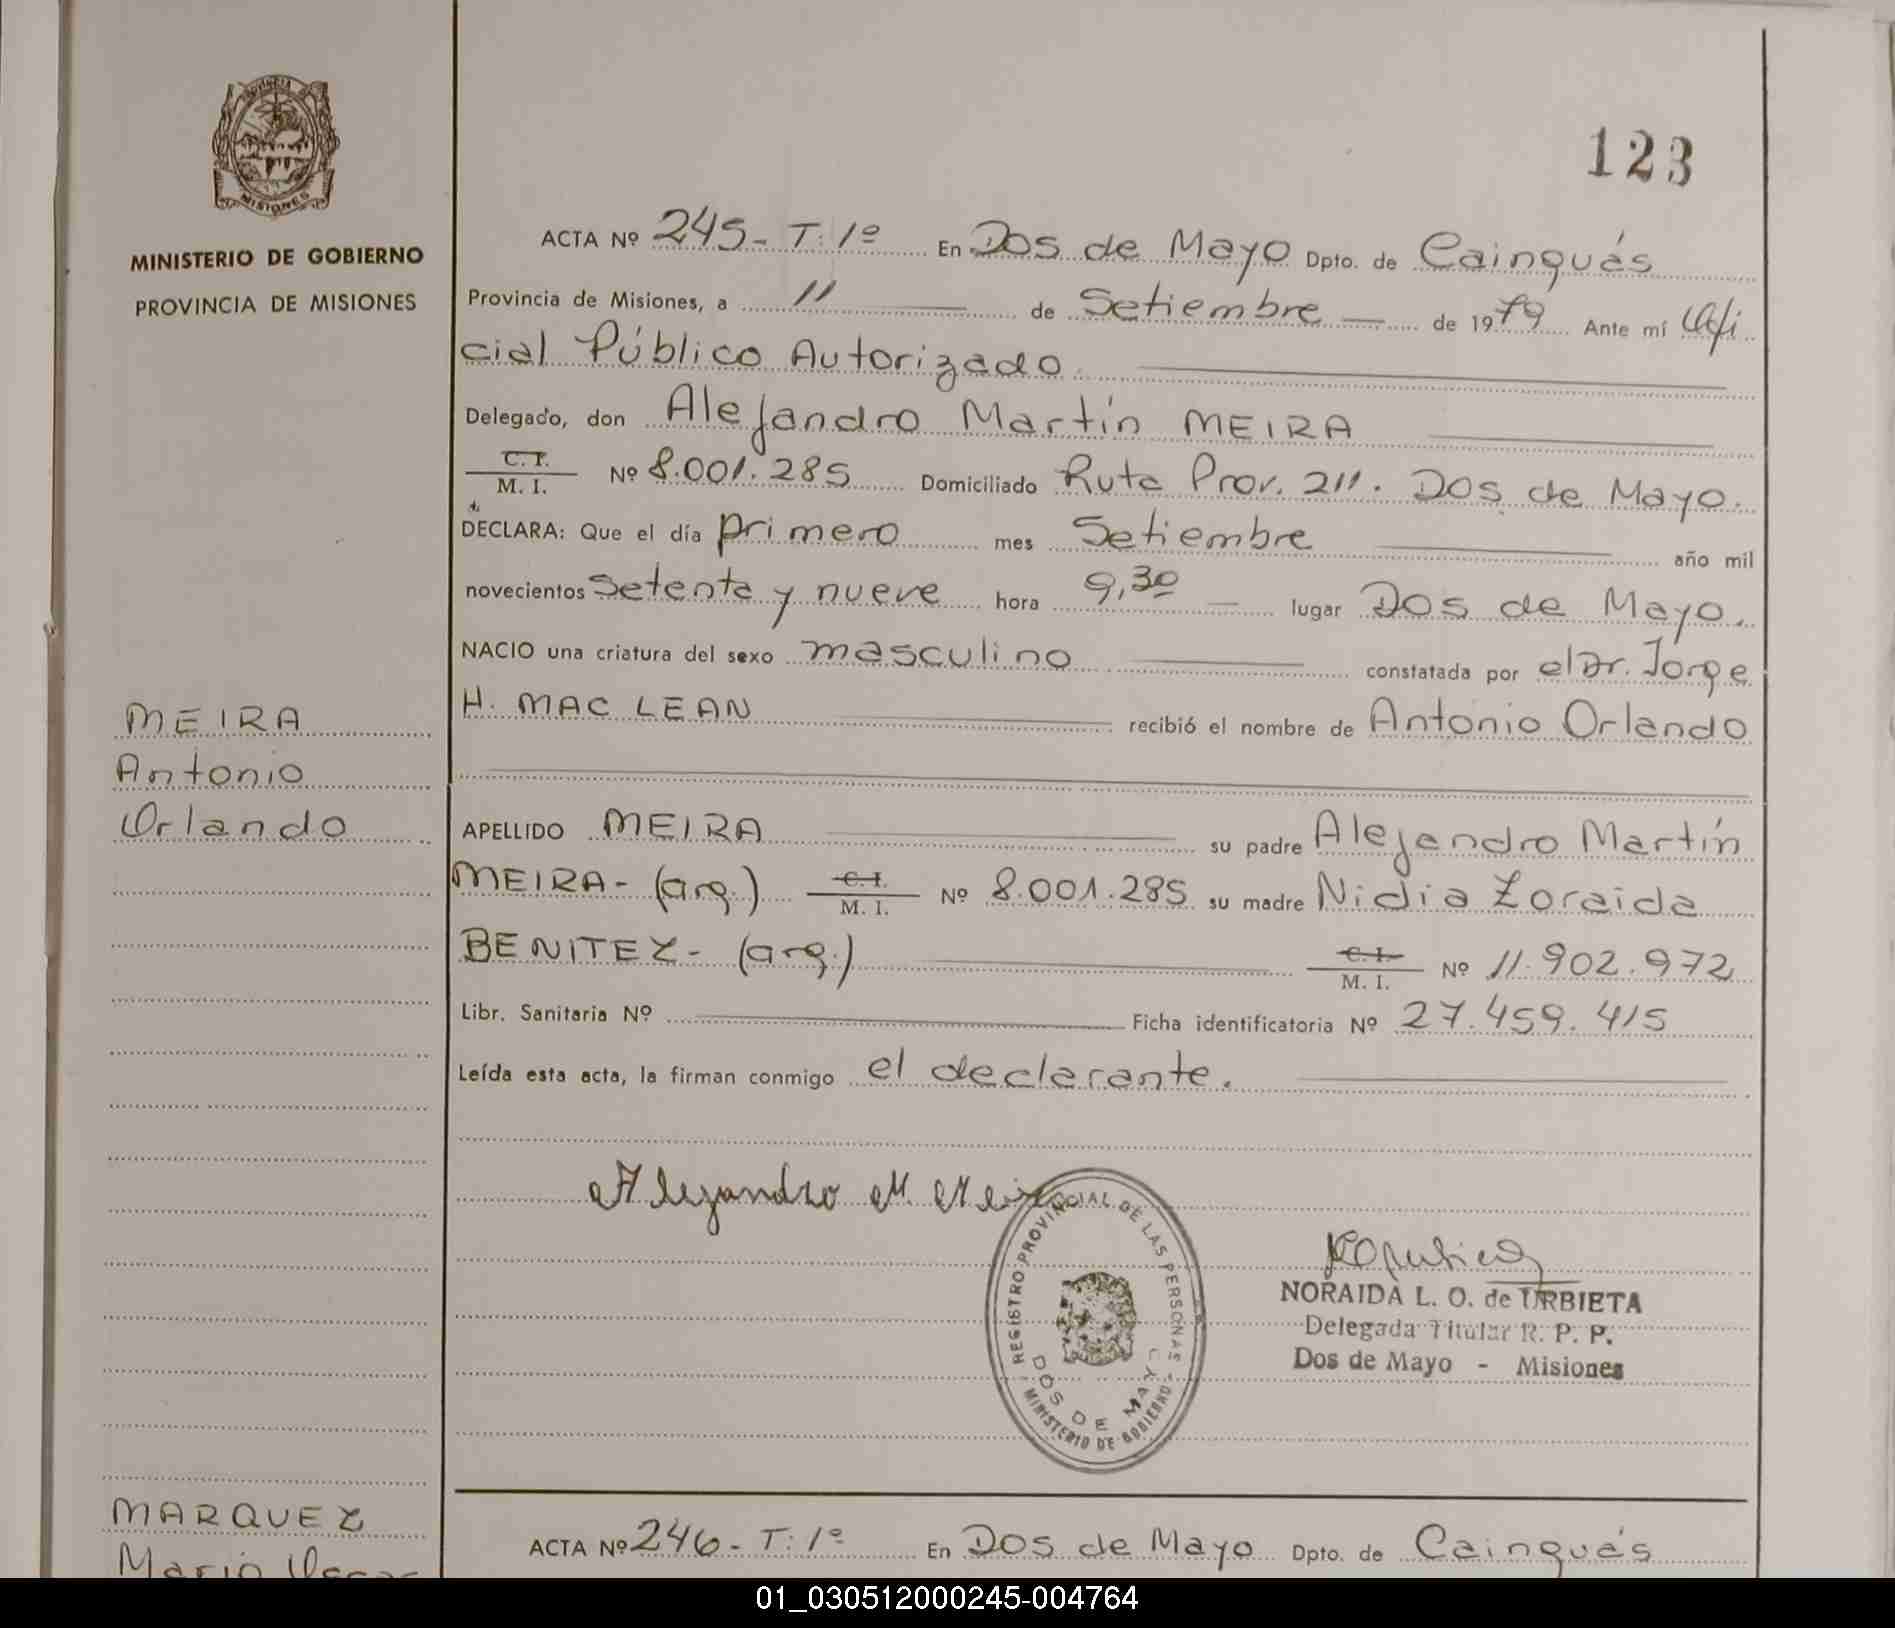 PROVINCIA DE
MISIONES
MINISTERIO DE GOBIERNO
PROVINCIA DE MISIONES
MEIRA
Antonio
Orlando
MARQUEZ
Mario
123
ACTA Nº 245- T: 1º En Dos de Mayo Dpto. de Cainguás
Provincia de Misiones, a 11 de Setiembre — de 1979 Ante mí Ofi
cial Público Autorizado.
Delegado, don Alejandro Martín MEIRA
C. I. M. I. Nº 8.001.285 Domiciliado Ruta Prov. 211. Dos de Mayo.
DECLARA: Que el día primero mes Setiembre año mil
novecientos setenta y nueve hora 9,30 — lugar Dos de Mayo.
NACIO una criatura del sexo masculino constatada por el Dr. Jorge
H. MAC LEAN recibió el nombre de Antonio Orlando
APELLIDO MEIRA su padre Alejandro Martín
MEIRA- (arg.) C. I. M. I. Nº 8.001.285 su madre Nidia Zoraida
BENITEZ- (arg.) C. I. M. I. Nº 11.902.972
Libr. Sanitaria Nº Ficha identificatoria Nº 27.459.415
Leída esta acta, la firman conmigo el declarante.
Alejandro M. Meira
REGISTRO PROVINCIAL DE LAS PERSONAS
DOS DE MAYO
MINISTERIO DE GOBIERNO
NORAIDA L. O. de URBIETA
Delegada Titular R. P. P.
Dos de Mayo - Misiones
ACTA Nº 246- T: 1º En Dos de Mayo Dpto. de Cainguás
01_030512000245-004764